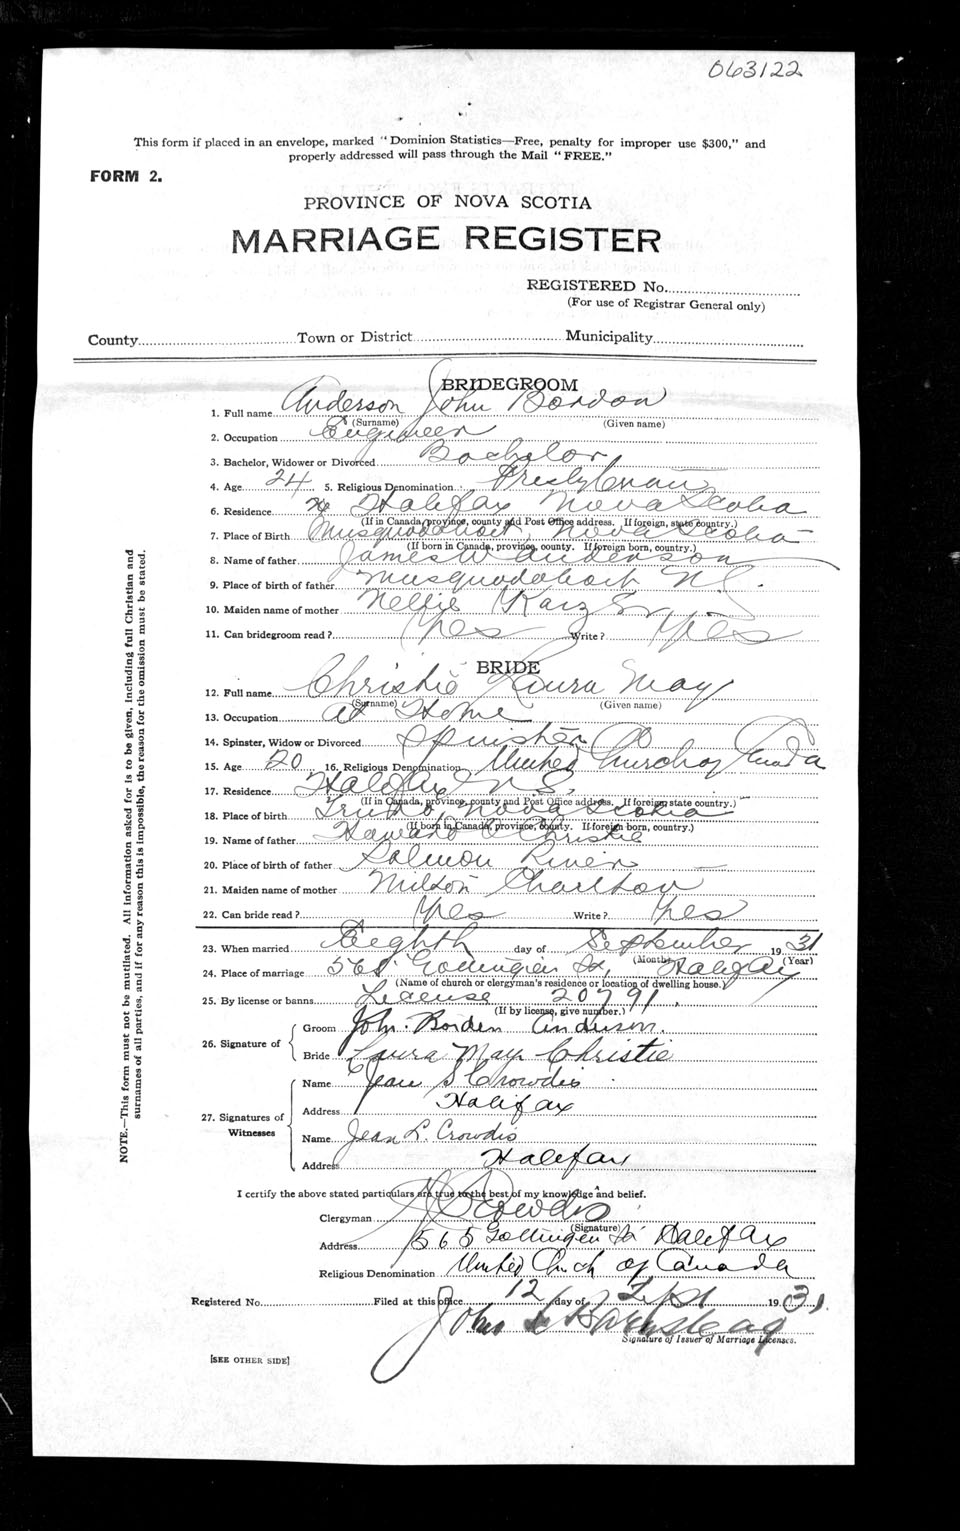 063122
This form if placed in an envelope, marked "Dominion Statistics—Free, penalty for improper use $300," and
properly addressed will pass through the Mail "FREE."
FORM 2.
PROVINCE OF NOVA SCOTIA
MARRIAGE REGISTER
REGISTERED No.
(For use of Registrar General only)
County Town or District Municipality
BRIDEGROOM
1. Full name Anderson John Bordon
(Surname) (Given name)
2. Occupation Engineer
3. Bachelor, Widower or Divorced Bachelor
4. Age 24 5. Religious Denomination Presbyterian
6. Residence Halifax Nova Scotia
(If in Canada, province, county and Post Office address. If foreign, state country.)
7. Place of Birth Musquodoboit, Nova Scotia
(If born in Canada, province, county. If foreign born, country.)
8. Name of father James W Anderson
9. Place of birth of father Musquodoboit N.S.
10. Maiden name of mother Nellie
11. Can bridegroom read? Yes Write? Yes
BRIDE
12. Full name Christie Laura May
(Surname) (Given name)
13. Occupation At Home
14. Spinster, Widow or Divorced Spinster
15. Age 20 16. Religious Denomination United Church of Canada
17. Residence Halifax N.S.
(If in Canada, province, county and Post Office address. If foreign state country.)
18. Place of birth Truro Nova Scotia
(If born in Canada, province, county. If foreign born, country.)
19. Name of father Christie
20. Place of birth of father Salmon River
21. Maiden name of mother Charlton
22. Can bride read? Yes Write? Yes
23. When married Eighth day of September 1931
(Month) (Year)
24. Place of marriage 565 Gottingen St, Halifax
(Name of church or clergyman's residence or location of dwelling house.)
25. By license or banns License 20791
(If by license, give number.)
26. Signature of
Groom John Borden Anderson.
Bride Laura May Christie
27. Signatures of Witnesses
Name Jean S Crowdis
Address Halifax
Name Jean L. Crowdis
Address Halifax
I certify the above stated particulars are true to the best of my knowledge and belief.
Clergyman Crowdis
(Signature)
Address 565 Gottingen St Halifax
Religious Denomination United Church of Canada
Registered No. Filed at this office 12 day of Sept 1931
John
Signature of Issuer of Marriage Licenses.
[SEE OTHER SIDE]
NOTE.—This form must not be mutilated. All information asked for is to be given, including full Christian and
surnames of all parties, and if for any reason this is impossible, the reason for the omission must be stated.